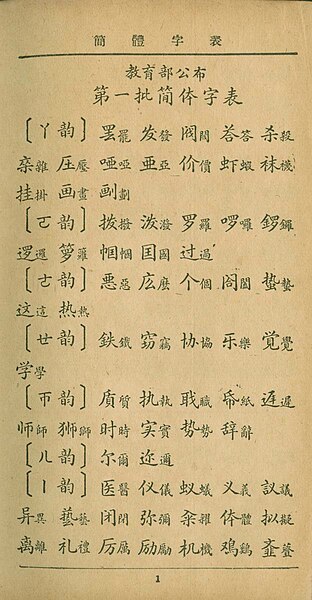 簡體字表
教育部公布
第一批简体字表
〔ㄚ韵〕 罢罷 发發 阀閥 荅答 杀殺
杂雜 压壓 哑啞 亚亞 价價 虾蝦 袜襪
挂掛 画畫 划劃
〔ㄛ韵〕 拨撥 泼潑 罗羅 啰囉 锣鑼
逻邏 箩籮 帼幗 国國 过過
〔ㄜ韵〕 恶惡 庅麼 个個 阁閣 蛰蟄
这這 热熱
〔ㄝ韵〕 鉄鐵 窃竊 协協 乐樂 觉覺
学學
〔ㄭ韵〕 质質 执執 职職 帋紙 迟遲
师師 狮獅 时時 实實 势勢 辞辭
〔ㄦ韵〕 尔爾 迩邇
〔ㄧ韵〕 医醫 仪儀 蚁蟻 义義 议議
异異 藝 闭閉 弥彌 籴糴 体體 拟擬
离離 礼禮 厉厲 励勵 机機 鸡鷄 齑虀
1